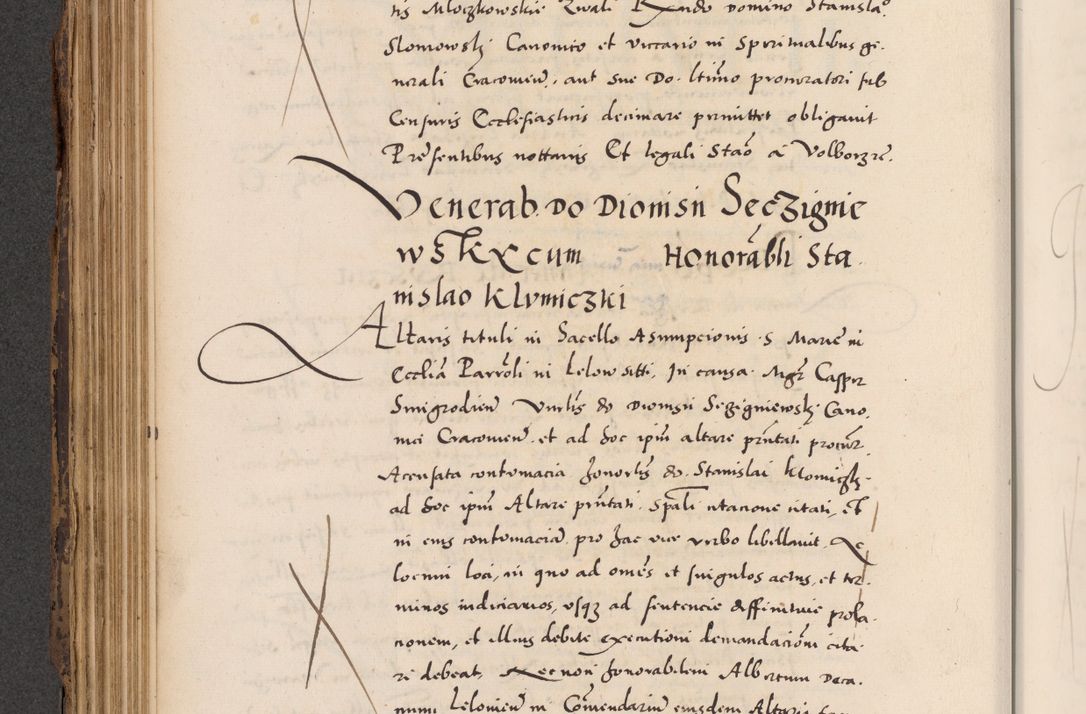 tis Mloczkowskie Zwali R̃ndo domino Stanisla⁹
Slomowskj Canonico et viccario in Spiritualibus ge-
nerali Cracovien̄. aut sue Do. ltīmo procuratori sub
Censuris Ecclesiasticis decimare permittet obligavit
Presentibus nottariis Et legali Stāo a Volborze.
Venerab. Do Dionisii Seczignie
wsk cum Honorabli Sta
nislao Klymiczki
Altaris tituli in Sacello Asumpcionis .S. Marie in
Eccliā Parroli in Lelow sitti, In causa. Mgr Casper
Smigrodien̄ Vnrlis do Dionisii Seczigniewskj Cano.
nici Cracovien̄. et ad hoc ipm̄ altare pn̄tati procur.
Acensata contumacia honorlis do. Stanislai Klomiczkj.
ad hoc ipm̄ Altare pn̄tati. Spāli citacione citati, et
in eius contumaciā pro hac vice verbo libellavit,
locum loci, in quo ad omēs et singulos actus, et ter-
minos iudiciarios, usqz ad sentencie diffinitivie prola
cionem, et illius debite executioni demandacioni cita
ri debeat, Necnon honorabilem Albertum Deca.
num Lelovien̄ in Comendariū eiusdem Altaris